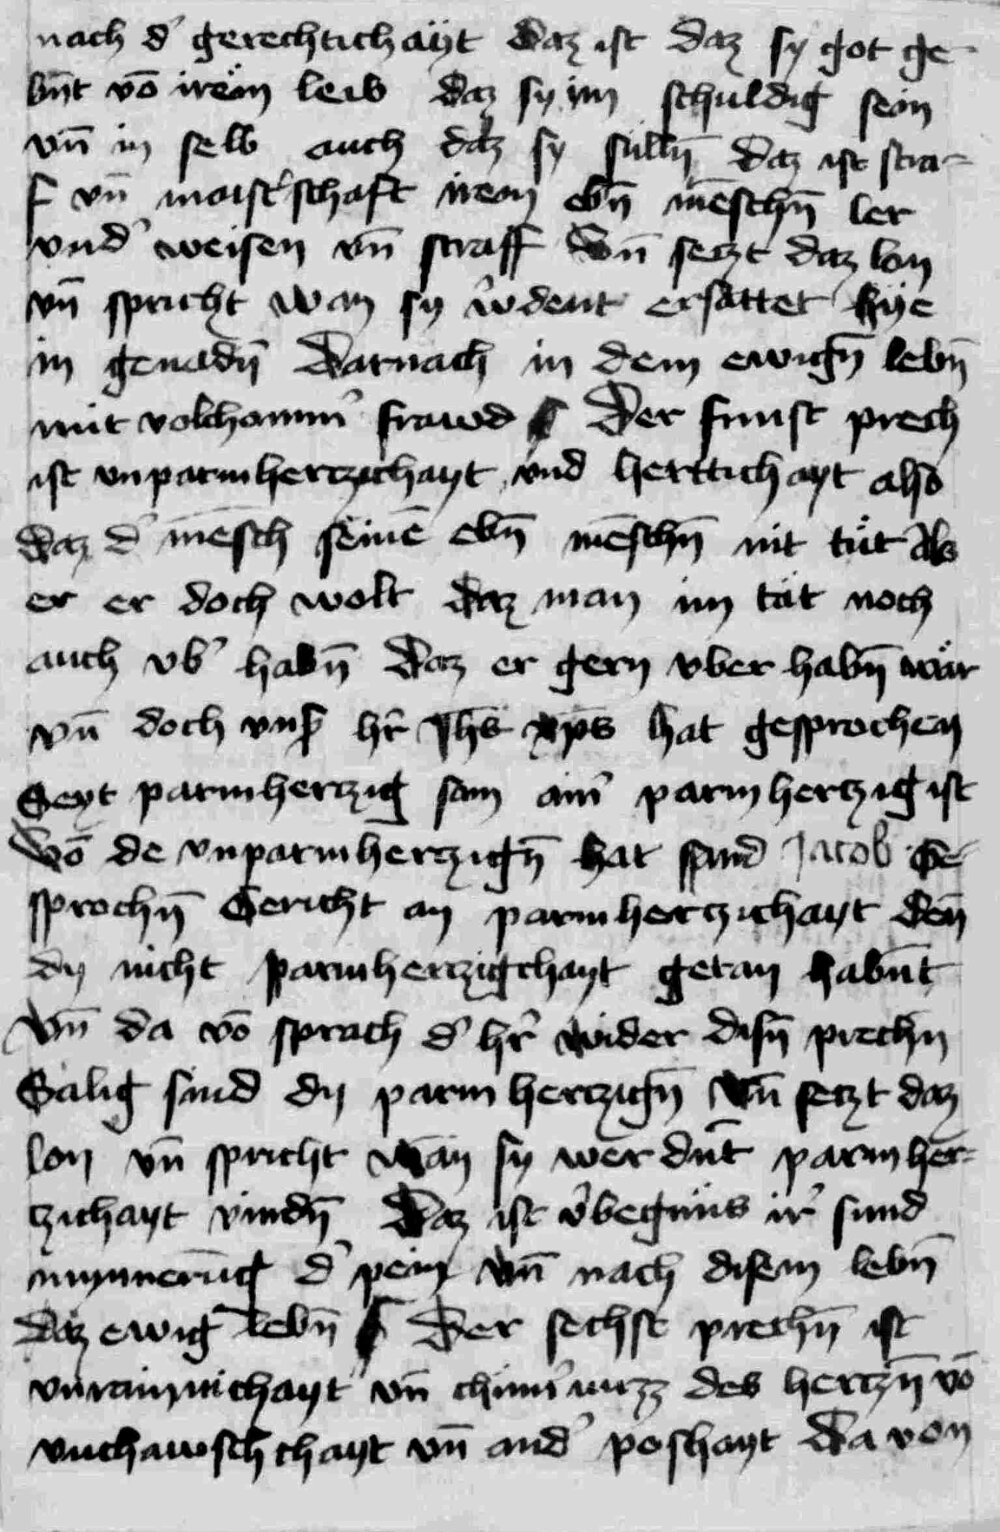 nach d' gerechtichaÿt Daz ist daz sy got ge-
bn̄t vō irem leib daz sy im schuldig sein
vn̄ in selb auch daz sy sulln̄ daz ist stra-
f vn̄ maist'schaft irem ebn̄ mēschn̄ ler
vnd' weisen vn̄ straff Vn̄ setzt daz lon
vn̄ spricht wan sy w'dent ersattet hÿe
in genadn̄ Darnach in dem ewign̄ lebn̄
mit volchomm' frawd Der funft prech
ist vnparmhertzichayt vnd herttichayt also
Daz d' mēsch seinē ebn̄ mēschn̄ nit tüt Als
er er doch wolt daz man im tät noch
auch vb' habn̄ Daz er gern vber habn̄ wär
vn̄ doch vns' hr̄ Jhs xp̄s hat gesprochen
Seyt parmhertzig sam ain' parmhertzig ist
Vō de vnparmhertzign̄ hat sand Jacob Ge-
sprochn̄ Gericht an parmhertzichayt den̄
dy nicht parmhertzigchayt getan habn̄t
Vn̄ da vō sprach d' hr̄ wider disn̄ prechn̄
Sälig sind dy parmhertzign̄ Vn̄ setzt daz
lon vn̄ spricht wan sy werdnt̄ parmher-
tzichayt vindn̄ Daz ist v'begnüs ir' sund
mynnerūg d' pein Vn̄ nach disem lebn̄
Daz ewig lebn̄ Der sechst prechn̄ ist
vnrainnichayt vn̄ des hertzn̄ vō
vnchawschchayt vn̄ and' poshayt Da von